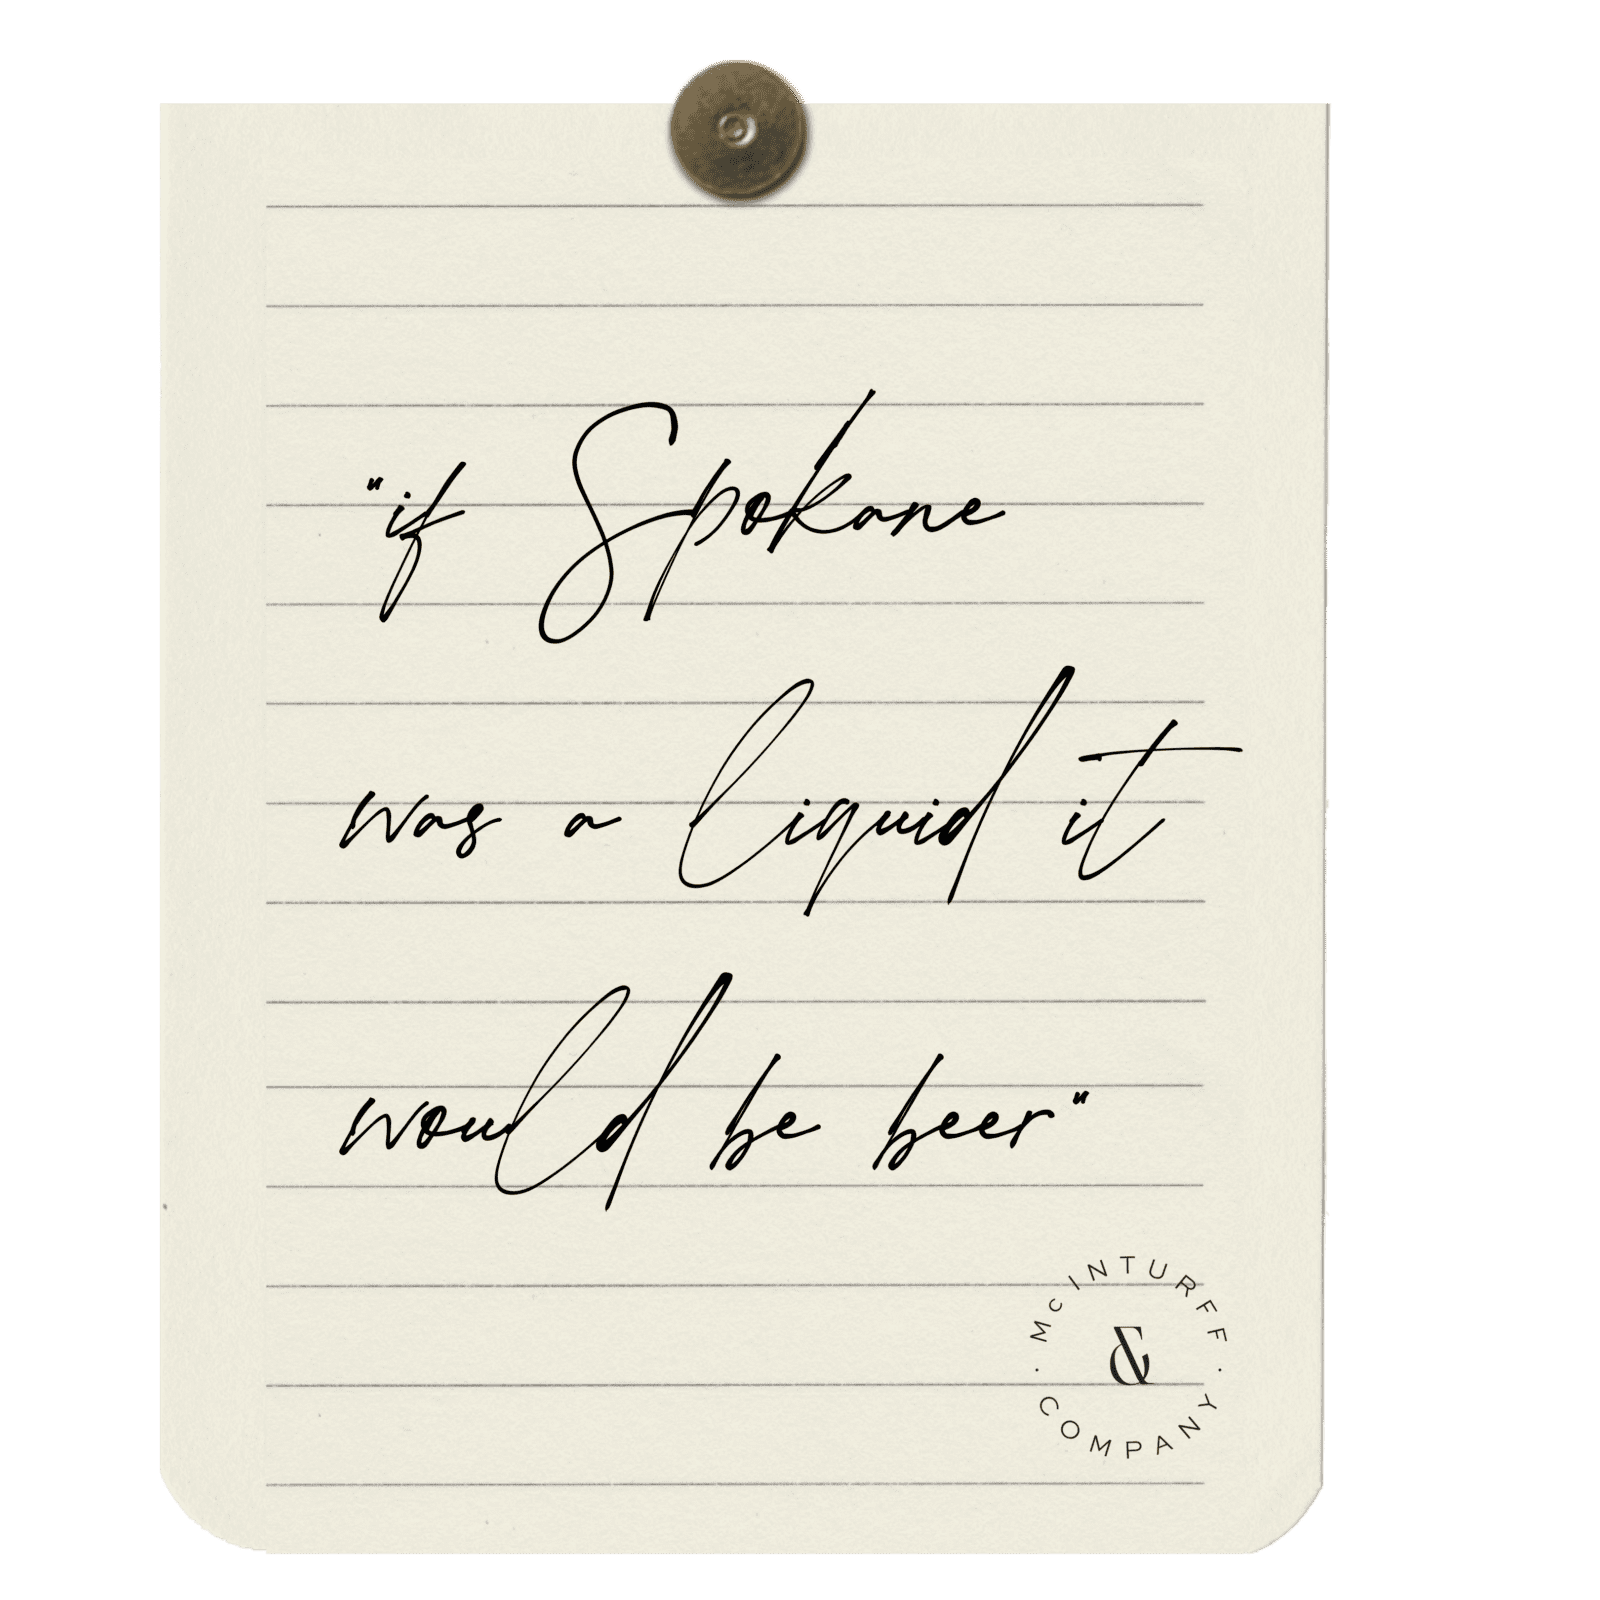 "if Spokane
was a liquid it
would be beer"
McINTURFF
&
· COMPANY ·